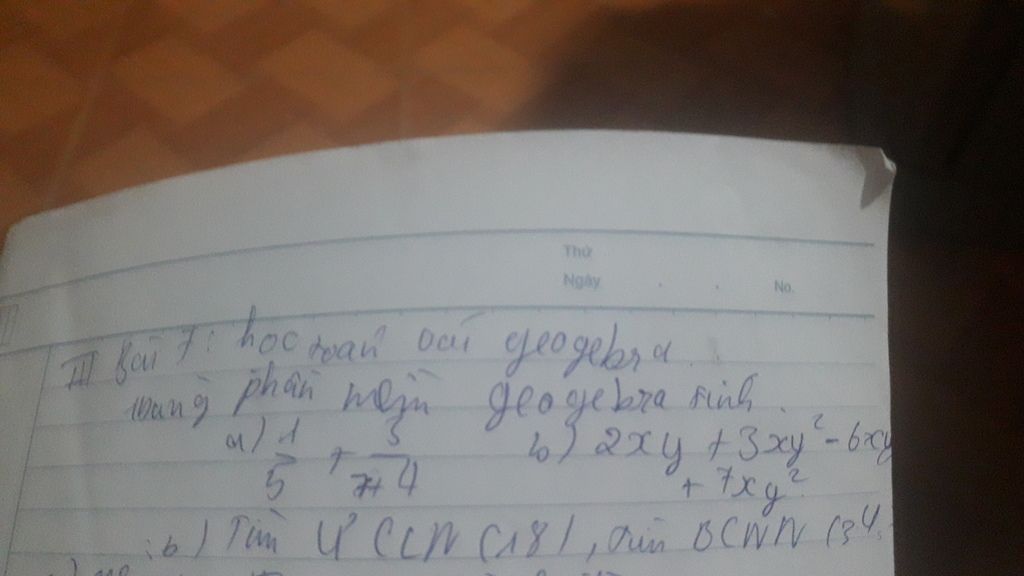 Thứ
Ngày No.
III Bài 7: học toán với geogebra
Dùng phần mềm geogebra tính
a) 1/5 + 3/4 b) 2xy + 3xy² - 6xy
+ 7xy²
b) Tìm ƯCLN (18), tìm BCNN (34